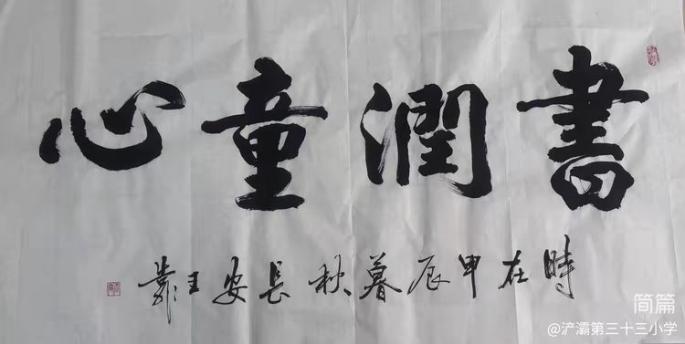 書潤童心
時在甲辰暮秋長安王
简篇
@浐灞第三十三小学